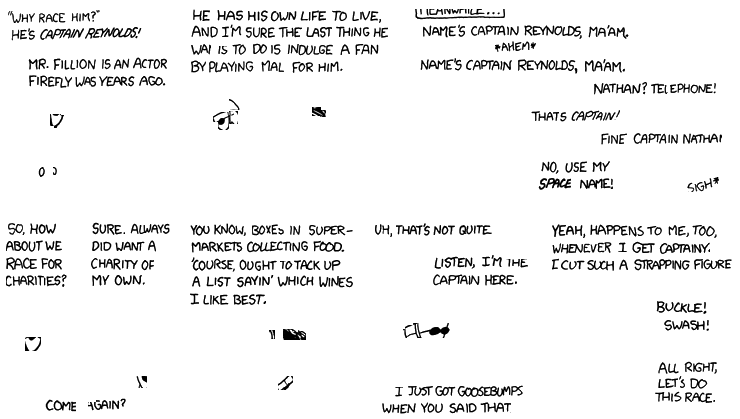 "WHY RACE HIM?"
HE'S CAPTAIN REYNOLDS!
MR. FILLION IS AN ACTOR
FIREFLY WAS YEARS AGO.
HE HAS HIS OWN LIFE TO LIVE,
AND I'M SURE THE LAST THING HE
IS TO DO IS INDULGE A FAN
BY PLAYING MAL FOR HIM.
MEANWHILE...
NAME'S CAPTAIN REYNOLDS, MA'AM.
*AHEM*
NAME'S CAPTAIN REYNOLDS, MA'AM.
NATHAN? TELEPHONE!
THATS CAPTAIN!
FINE CAPTAIN
NO, USE MY
SPACE NAME!
SIGH*
SO, HOW
ABOUT WE
RACE FOR
CHARITIES?
SURE. ALWAYS
DID WANT A
CHARITY OF
MY OWN.
COME AGAIN?
YOU KNOW, BOXES IN SUPER-
MARKETS COLLECTING FOOD.
'COURSE, OUGHT TO TACK UP
A LIST SAYIN' WHICH WINES
I LIKE BEST.
UH, THAT'S NOT QUITE
LISTEN, I'M THE
CAPTAIN HERE.
I JUST GOT GOOSEBUMPS
WHEN YOU SAID THAT
YEAH, HAPPENS TO ME, TOO,
WHENEVER I GET CAPTAINY.
I CUT SUCH A STRAPPING FIGURE
BUCKLE!
SWASH!
ALL RIGHT,
LET'S DO
THIS RACE.